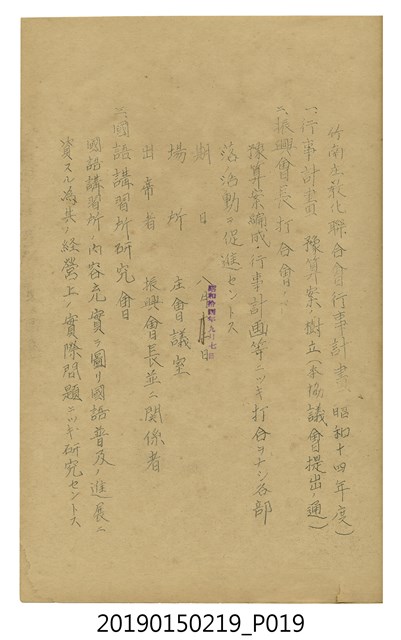 竹南庄教化聯合會行事計畫(昭和十四年度)
一、行事計畫豫算案ノ樹立(本協議會提出ノ通)
二、振興會長打合會
豫算案編成行事計画等ニツキ打合ヲナシ各部
落ノ活動ヲ促進セントス
期日 八月 日
昭和拾四年九月七日
場所 庄會議室
出席者 振興會長並ニ關係者
三、國語講習所研究會
國語講習所ノ内容充實ヲ圖リ國語普及ノ進展ニ
資スル為其ノ經營上ノ實際問題ニツキ研究セントス
20190150219_P019